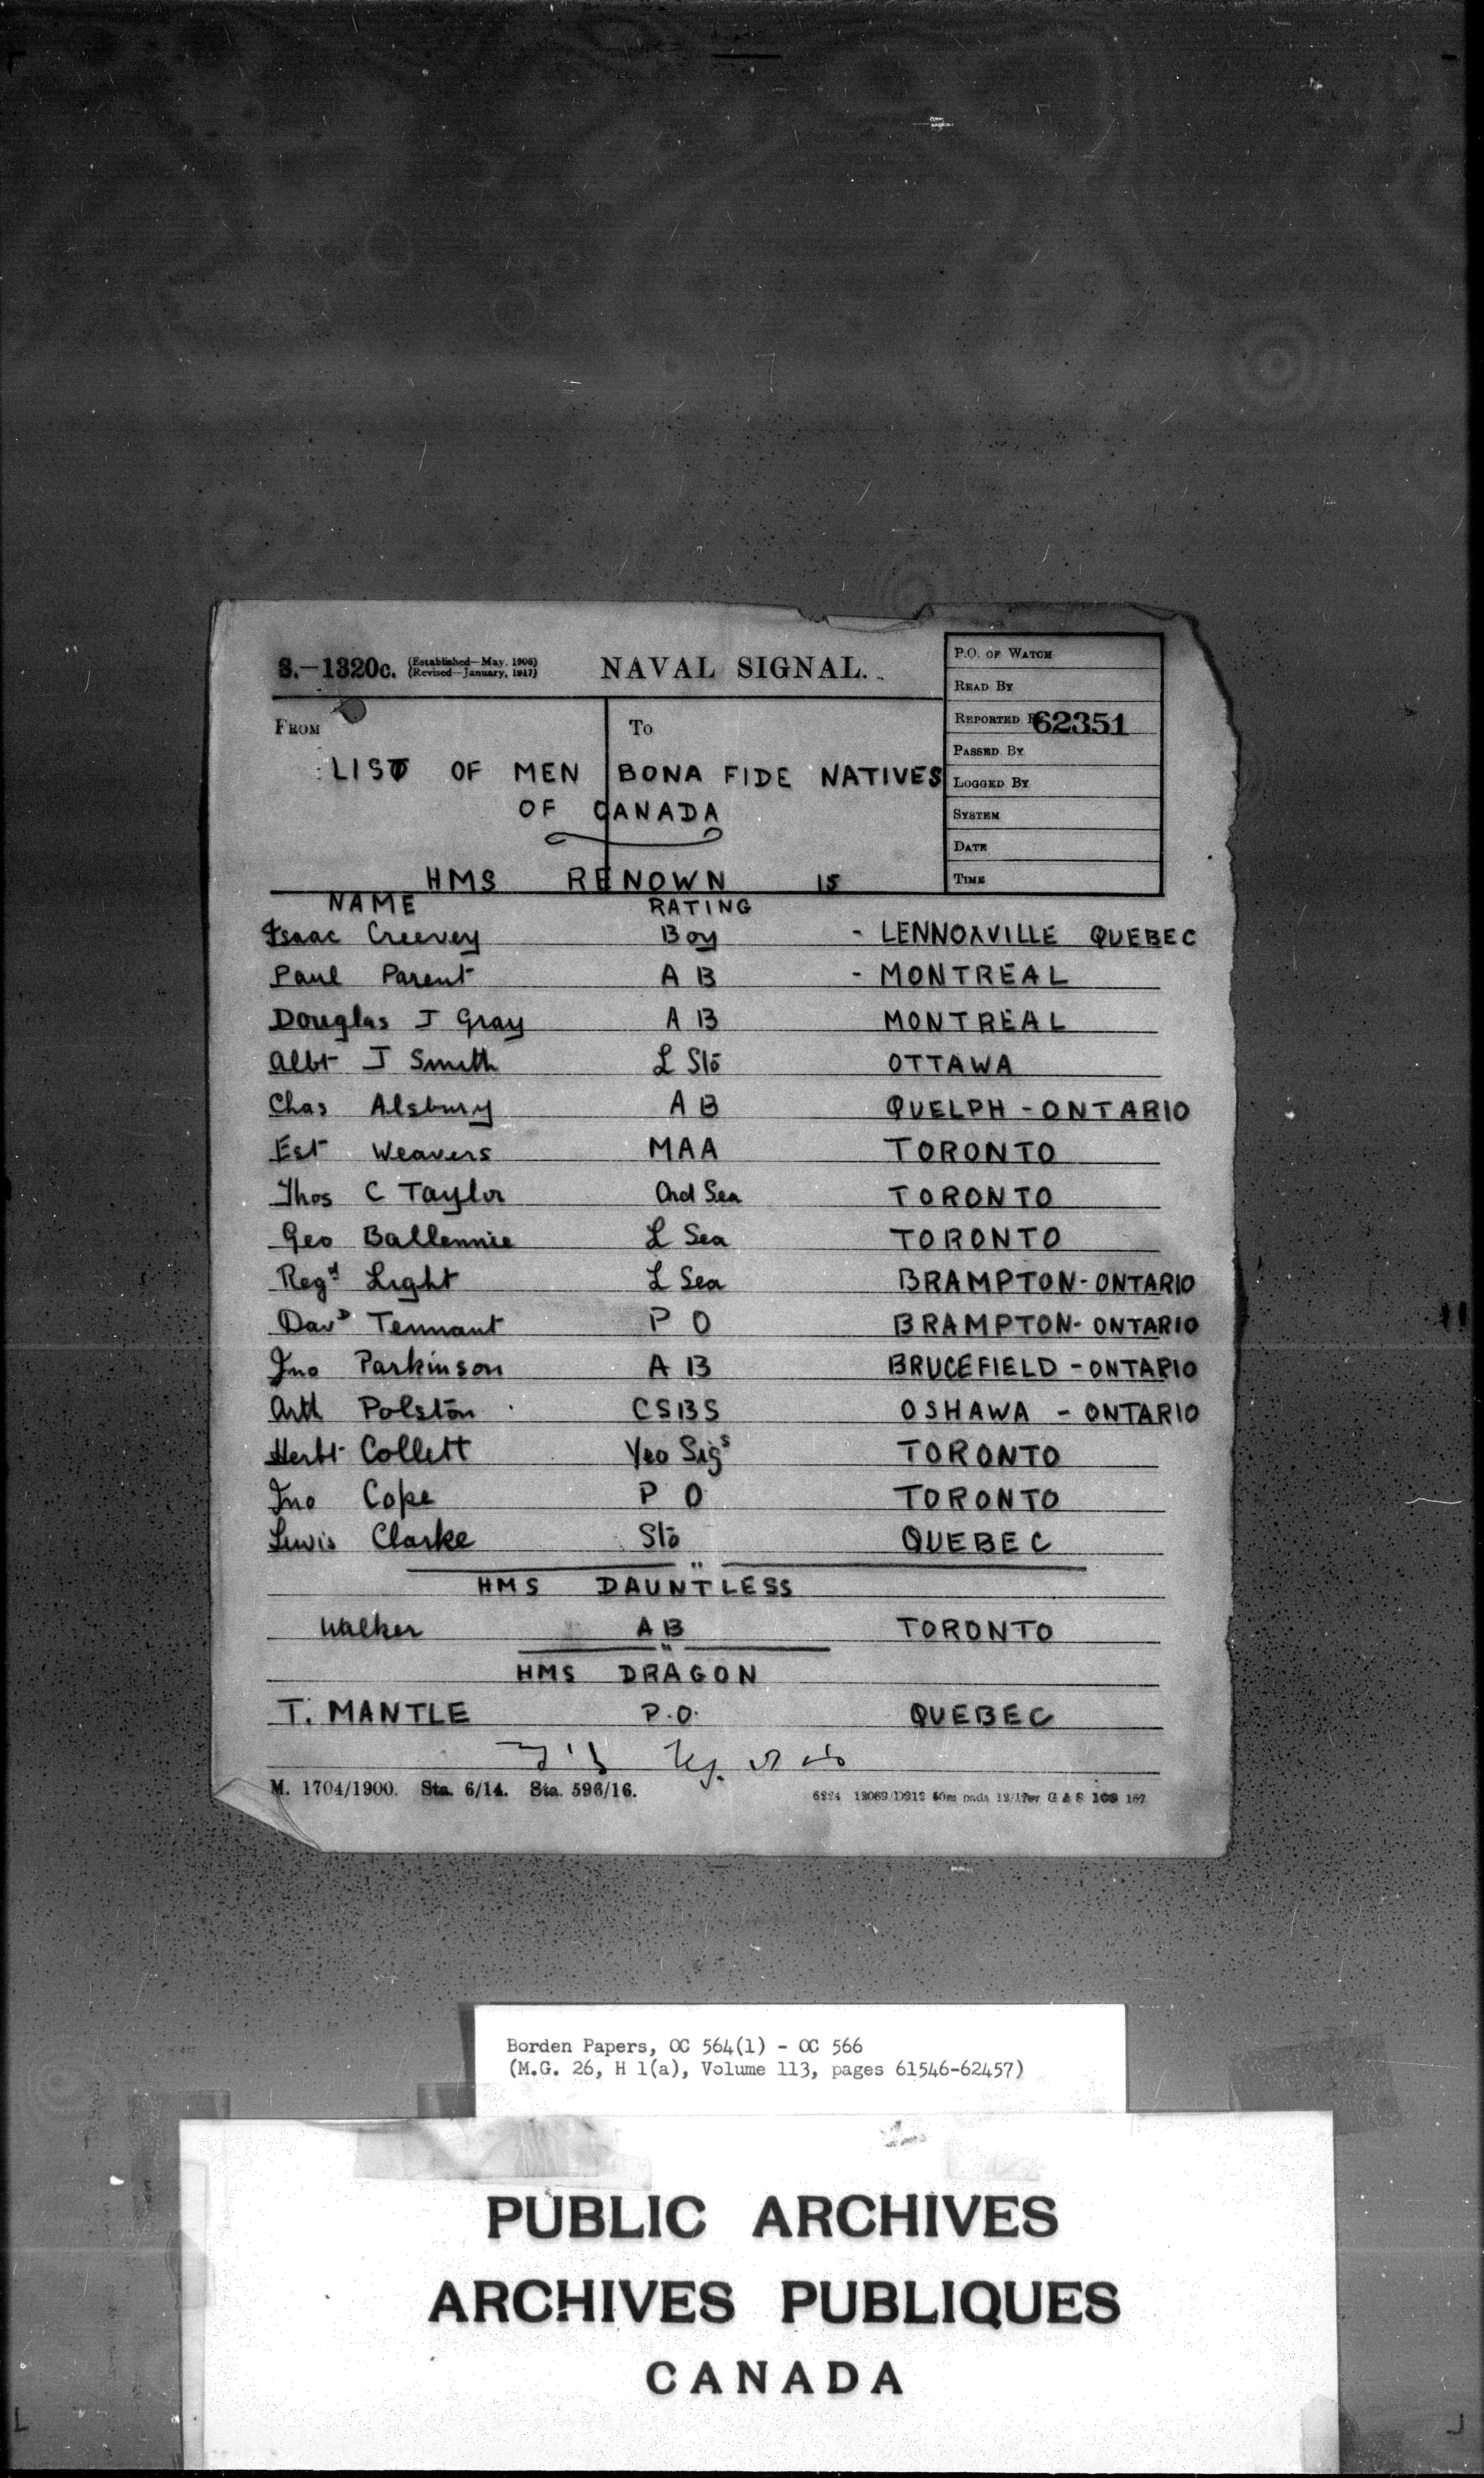 S.—1320c. (Established—May, 1906) NAVAL SIGNAL.
(Revised—January, 1917)
P.O. OF WATCH
READ BY
REPORTED 62351
PASSED BY
LOGGED BY
SYSTEM
DATE
TIME
FROM To
LIST OF MEN BONA FIDE NATIVES
OF CANADA
HMS RENOWN 15
NAME RATING
Isaac Creevey Boy - LENNOXVILLE QUEBEC
Paul Parent A B - MONTREAL
Douglas J Gray A B MONTREAL
Albt J Smith L Sto OTTAWA
Chas Alsbury A B QUELPH - ONTARIO
Est Weavers MAA TORONTO
Thos C Taylor Ord Sea TORONTO
Geo Ballennie L Sea TORONTO
Regd Light L Sea BRAMPTON - ONTARIO
DavD Tennant P O BRAMPTON - ONTARIO
Jno Parkinson A B BRUCEFIELD - ONTARIO
Arth Polston CSBS OSHAWA - ONTARIO
Herbt Collett Yeo Sigs TORONTO
Jno Cope P O TORONTO
Lewis Clarke Sto QUEBEC
HMS DAUNTLESS
Walker A B TORONTO
HMS DRAGON
T. MANTLE P.O. QUEBEC
M. 1704/1900. Sta. 6/14. Sta. 596/16.
Borden Papers, OC 564(1) - OC 566
(M.G. 26, H 1(a), Volume 113, pages 61546-62457)
PUBLIC ARCHIVES
ARCHIVES PUBLIQUES
CANADA